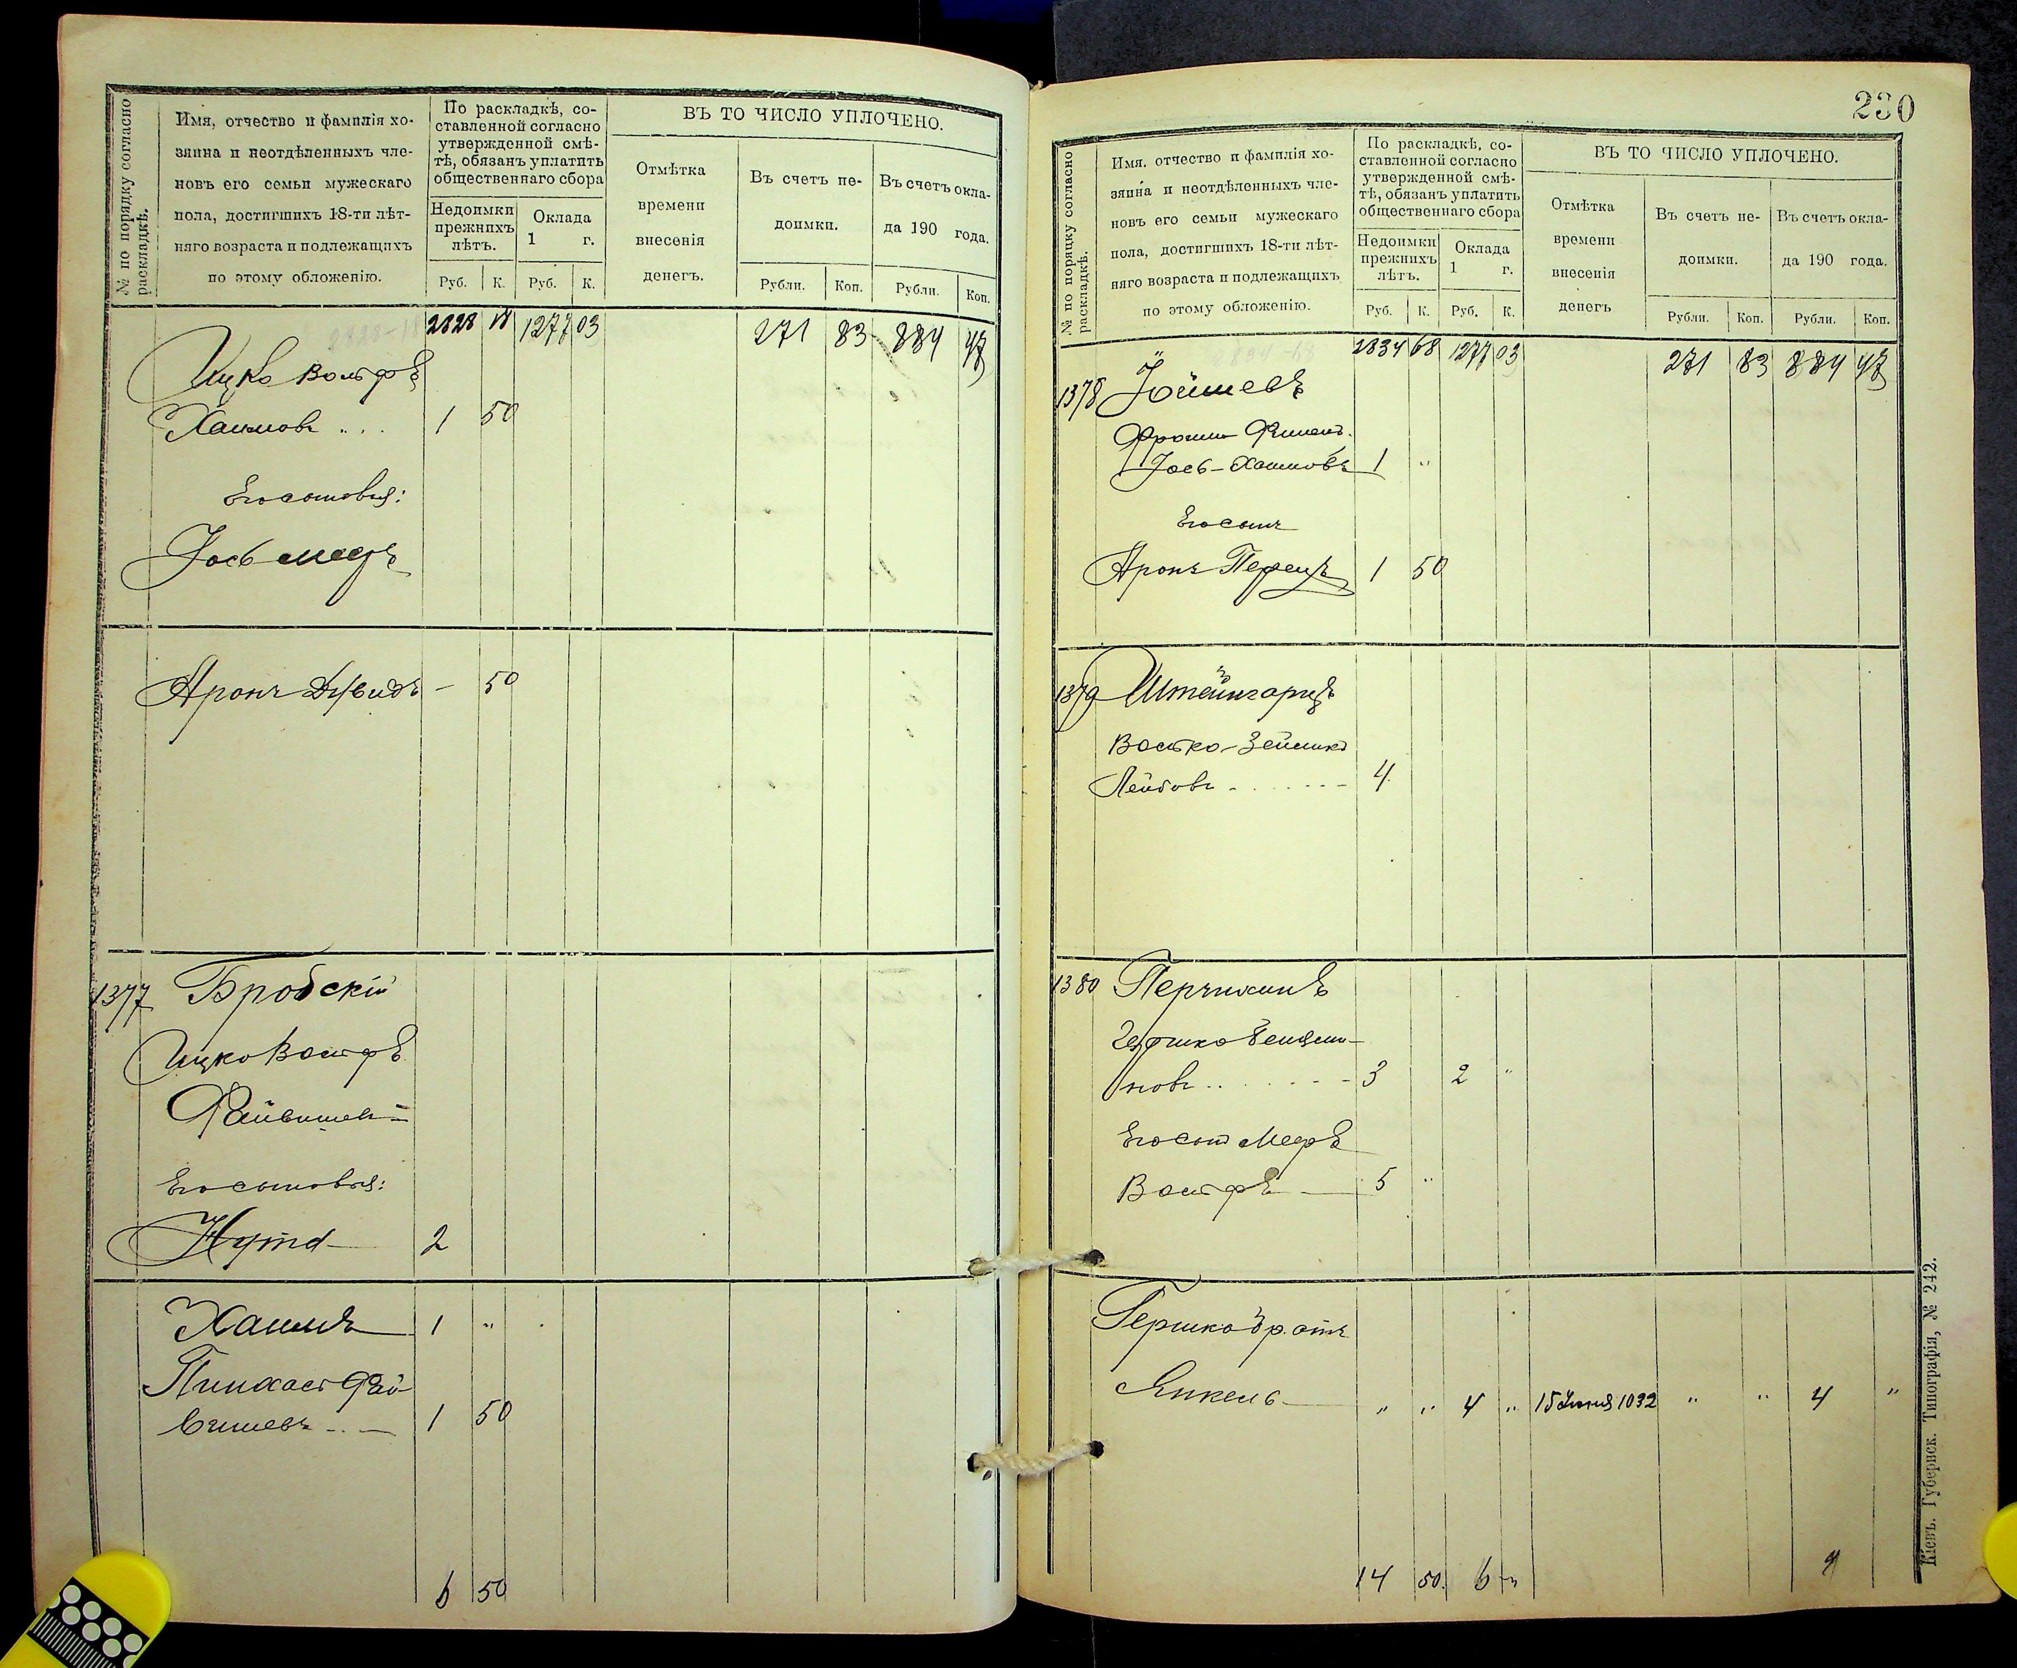 № по порядку согласно
раскладкѣ.
Имя, отчество и фамилія хо-
зяина и неотдѣленныхъ чле-
новъ его семьи мужескаго
пола, достигшихъ 18-ти лѣт-
няго возраста и подлежащихъ
по этому обложенію.
По раскладкѣ, со-
ставленной согласно
утвержденной смѣ-
тѣ, обязанъ уплатить
общественнаго сбора
Недоимки
прежнихъ
лѣтъ.
Оклада
1 г.
Руб. К. Руб. К.
ВЪ ТО ЧИСЛО УПЛОЧЕНО.
Отмѣтка
времени
внесенія
денегъ.
Въ счетъ не-
доимки.
Въ счетъ окла-
да 190 года.
Рубли. Коп. Рубли. Коп.
2828 18 1277 03 271 83 884 47
Ицко Вольфъ
Хаимовъ 1 50
Его сыновья:
Іось Мееръ
Аронъ Давидъ - 50
1377 Бродскій
Ицко Вольфъ
Файвишев
Его сыновья:
Нута 2
Хаимъ 1 "
Пинхасъ Фай-
вишевъ 1 50
6 50
230
№ по порядку согласно
раскладкѣ.
Имя, отчество и фамилія хо-
зяина и неотдѣленныхъ чле-
новъ его семьи мужескаго
пола, достигшихъ 18-ти лѣт-
няго возраста и подлежащихъ
по этому обложенію.
По раскладкѣ, со-
ставленной согласно
утвержденной смѣ-
тѣ, обязанъ уплатить
общественнаго сбора
Недоимки
прежнихъ
лѣтъ.
Оклада
1 г.
Руб. К. Руб. К.
ВЪ ТО ЧИСЛО УПЛОЧЕНО.
Отмѣтка
времени
внесенія
денегъ
Въ счетъ не-
доимки.
Въ счетъ окла-
да 190 года.
Рубли. Коп. Рубли. Коп.
2834 68 1277 03 271 83 884 47
1378 Юшевъ
Іось-Хаимовъ 1 "
Его сынъ
Аронъ Перецъ 1 50
1379 Штейнгарцъ
Волько-Зейлик
Лейбовъ 4
1380 Перчихинъ
Гершко Бенцио-
новъ 3 2 "
Его сын Мееръ
Вольфъ 5 "
Гершко братъ
Янкель " " 4 " 15 Іюня 1032 " " 4 "
14 50 6 " 4
Кіевъ. Губернск. Типографія, № 242.